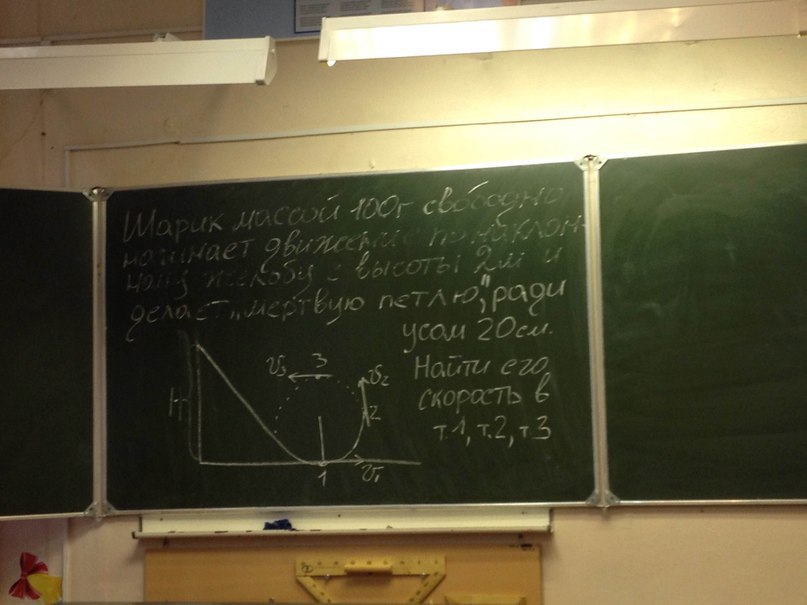 Шарик массой 100г свободно
начинает движение по наклон-
ному желобу с высоты 2м и
делает „мертвую петлю", ради
усом 20см.
Найти его
скорость в
т.1, т.2, т.3
H
v₃
3
v₂
2
1
v₁